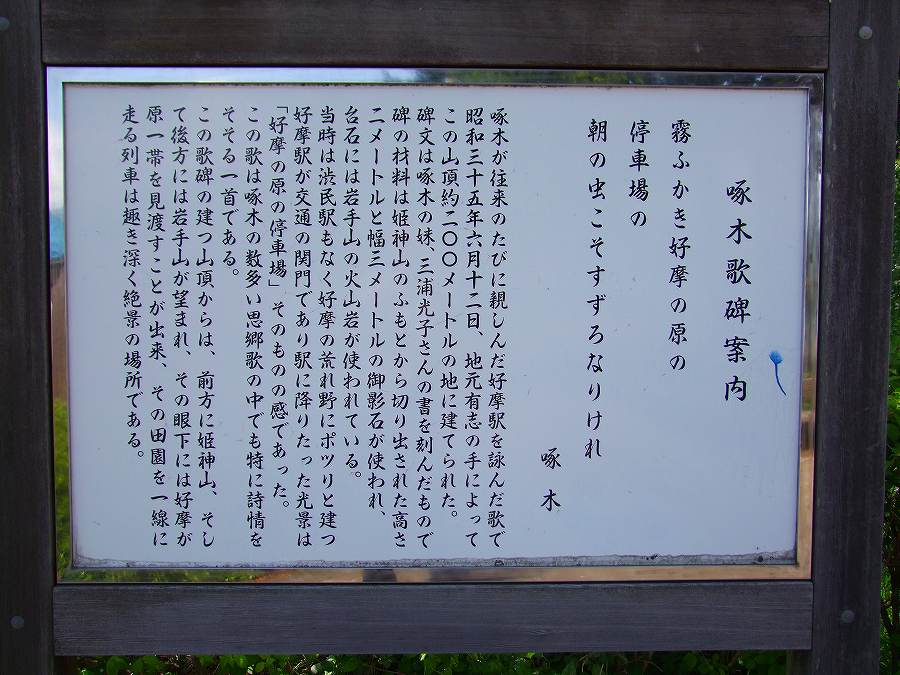 啄木歌碑案内
霧ふかき好摩の原の
停車場の
朝の虫こそすずろなりけれ
啄木
啄木が往来のたびに親しんだ好摩駅を詠んだ歌で
昭和三十五年六月十二日、地元有志の手によって
この山頂約二〇〇メートルの地に建てられた。
碑文は啄木の妹、三浦光子さんの書を刻んだもので
碑の材料は姫神山のふもとから切り出された高さ
二メートルと幅三メートルの御影石が使われ、
台石には岩手山の火山岩が使われている。
当時は渋民駅もなく好摩の荒れ野にポツリと建つ
好摩駅が交通の関門であり駅に降りたった光景は
「好摩の原の停車場」そのものの感であった。
この歌は啄木の数多い思郷歌の中でも特に詩情を
そそる一首である。
この歌碑の建つ山頂からは、前方に姫神山、そし
て後方には岩手山が望まれ、その眼下には好摩が
原一帯を見渡すことが出来、その田園を一線に
走る列車は趣き深く絶景の場所である。